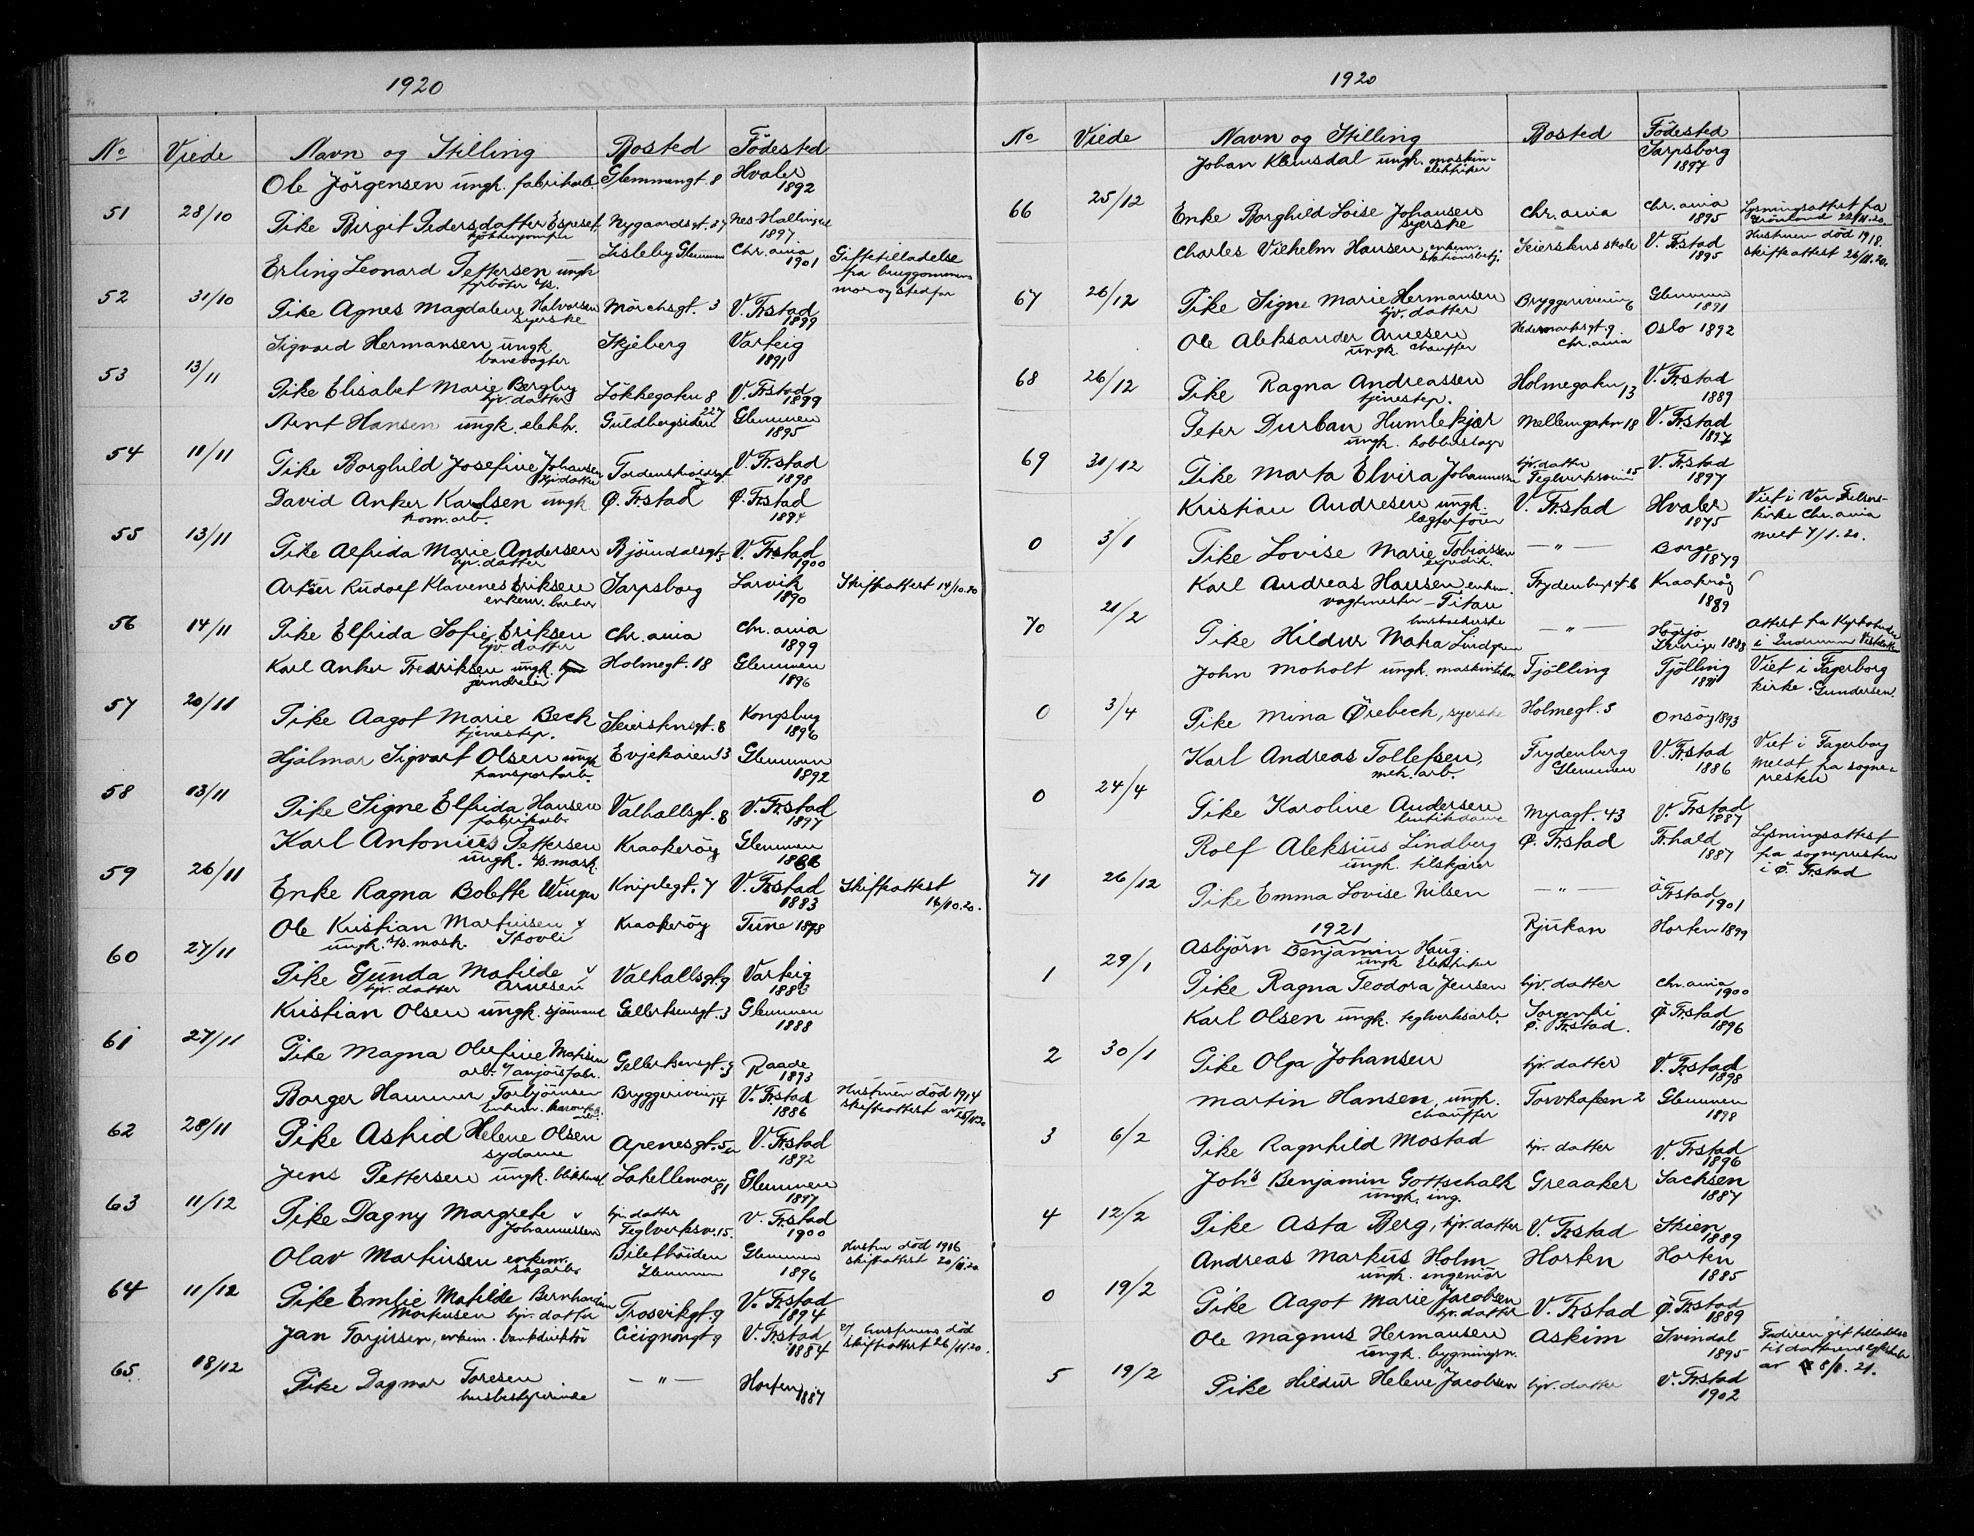 1920
No Viede Navn og Stilling Bosted Födested
Ole Jörgensen ungk. fabrikarb. Glemmengt. 8 Hvaler 1892
51 28/10 Pike Birgit Pedersdatter Espeset Nygaardsgt. 27 Nes-Hallingd 1897
Erling Leonard Pettersen ungk. fyrböter Lisleby Glemmen Chr.ania 1901 Giftetilladelse
fra brudgommens
mor og stedfar
52 31/10 Pike Agnes Magdalene Halvorsen syerske Mörchsgt. 3 V. Fr.stad 1899
Sigvard Hermansen ungk. banevogter Skjeberg Varteig 1891
53 13/11 Pike Elisabet Marie Bergby hjv. datter Lökkegaten 8 V. Fr.stad 1899
Arnt Hansen ungk. elektr. Guldbergsiden 227 Glemmen 1895
54 11/11 Pike Borghild Josefine Johansen hjv datter Tordenskioldsgt. 7 V. Fr.stad 1898
David Anker Karlsen ungk kom. arb. Ø. Fr.stad Ø. Fr.stad 1894
55 13/11 Pike Alfrida Marie Andersen hjv. datter Bjömdalsgt. 5 V. Fr.stad 1900
Artur Rudolf Klavenes Eriksen enkem. barber Sarpsborg Larvik 1890 Skifteattest 14/10.20
56 14/11 Pike Elfrida Sofie Eriksen hjv. datter Chr.ania Chr.ania 1899
Karl Anker Fredriksen ungk. jerndreier Holmegt. 18 Glemmen 1896
57 20/11 Pike Aagot Marie Bech tjenestep. Seierskrsgt. 8 Kongsberg 1896
Hjalmar Sigvart Olsen ungk transportarb. Evjekaien 13 Glemmen 1892
58 13/11 Pike Signe Elfrida Hansen fabrikarb. Valhallsgt. 8 V. Fr.stad 1897
Karl Antonius Pettersen ungk. mask. Kraakeröy Glemmen
59 26/11 Enke Ragna Bolette Winger Kniplegt. 7 V. Fr.stad 1883 Skifteattest 16/10.20.
Ole Kristian Martinsen Skovli ungk. mask. Kraakeröy Tune 1878
60 27/11 Pike Gunda Matilde Arnesen hjv. datter Valhallsgt. 9 Varteig 1883
Kristian Olsen ungk. sjömand Gellertsensgt. 3 Glemmen 1888
61 27/11 Pike Magna Olufine Mathisen arb. ansjosfabr. Gellertsensgt. 3 Raade 1893
Borger Hammer Torbjörnsen Enkem. Bryggeriveien 14 V. Fr.stad 1886 Hustruen död 1914
skifteattest av
62 28/11 Pike Astrid Helene Olsen sydame Apenesgt. 5a V. Fr.stad 1892
Jens Pettersen ungk. blikkensl. Lahellemoen 81 Glemmen 1897
63 11/12 Pike Dagny Margrete Johannessen hjv. datter Teglverksv. 15. V. Fr.stad 1900
Olav Martinsen enkem. sagarb. Biletthöiden Glemmen Glemmen 1896 Hustru död 1916
skifteattest 20/11.20
64 11/12 Pike Emlie Matilde Bernhardine Markussen hjv. datter Trosvikgt. 9 V. Fr.stad 1894
Jan Torjussen, enkem. bankdirektör Cicignongt. 9 V. Fr.stad 1884 hustruens död
skifteattest 26/11.20.
65 18/12 Pike Dagmar Toresen husbestyrerinde — " — Horten 1887
1920
No Viede Navn og Stilling Bosted Födested
Johan Klemsdal ungk. maskin- elektriker Sarpsborg 1897
66 25/12 Enke Borghild Loise Johansen syerske Chr.ania Chr.ania 1895 Lysningsattest fra
Grönland 22/11.20.
Charles Vilhelm Hansen enkem. stationsbetj. Seierskrsskole V. Fr.stad 1895 Hustruen död 1918.
skifteattest 26/11.20.
67 26/12 Pike Signe Marie Hermansen hjv. datter Bryggeriveien 6 Glemmen 1891
Ole Aleksander Arnesen ungk. chauffør Hedemarksgt. 9. Chr.ania Oslo 1892
68 26/12 Pike Ragna Andreassen tjenestep. Holmegaten 13 V. Fr.stad 1889
Peter Durban Humlekjær ungk. kobberslager Mellemgaten 18 V. Fr.stad 1897
69 31/12 Pike Marta Elvira Johannessen hjv. datter Teglverksveien 15 V. Fr.stad 1897
Kristian Andresen ungk. lægterförer V. Fr.stad Hvaler 1875 Viet i Vor Frelsers-
kirke Chr.ania
melt 7/1.20.
0 3/1 Pike Lovise Marie Tobiassen expedit. — " — Borge 1879
Karl Andreas Hansen enkem. vagtmester – Titan Frydenbergt. 6 Kraakerøy 1889
70 21/2 Pike Hildur Maria Lindgren husholderske — " — Högsjö Sverige 1888 Attest fra Kyrkoherden
John Moholt ungk. maskintekn Tjølling Tjølling 1891 Viet i Fagerborg
kirke. Gundersen.
0 3/4 Pike Mina Ørebech, syerske Holmegt. 5 Onsöy 1893
Karl Andreas Tollefsen, mek. arb. Frydenberg Glemmen V. Fr.stad 1886 Viet i Fagerborg
meldt fra sogne-
presten
0 24/4 Pike Karoline Andersen butikdame Myragt. 43 V. Fr.stad 1887
Rolf Aleksius Lindberg ungk. tilskjærer Ø. Fr.stad Fr.hald 1887 Lysningsattest
fra sognepresten
i Ø. Fr.stad
71 26/12 Pike Emma Lovise Nilsen — " — Ö Fr.stad 1901
1921
Asbjörn Benjamin Haug. ungk Elektriker Rjukan Horten 1899
1 29/1 Pike Ragna Teodora Jensen hjv. datter Chr.ania 1900
Karl Olsen ungk. teglverksarb. Sorgenfri Ø. Fr.stad. Ø. Fr.stad 1896
2 30/1 Pike Olga Johansen hjv. datter V. Fr.stad 1898
Martin Hansen, ungk. chauffør Torvkassen 2 Glemmen 1898
3 6/2 Pike Ragnhild Mostad hjv. datter V. Fr.stad 1896
Johs Benjamin Gottschalk ungk. ing. Greaaker Sachsen 1887
4 12/2 Pike Asta Berg, hjv. datter V. Fr.stad Skien 1889
Andreas Markus Holm ungk. ingeniör Horten Horten 1885
0 19/2 Pike Aagot Marie Jacobsen hjv. datter V. Fr.stad Ø. Fr.stad 1889
Ole Magnus Hermansen ungk. bygningsn. Askim Svindal 1895 Faderen git tilladelse
til datterens egteskab
av 8/1.21.
5 19/2 Pike Hildur Helene Jacobsen hjv. datter V. Fr.stad 1902